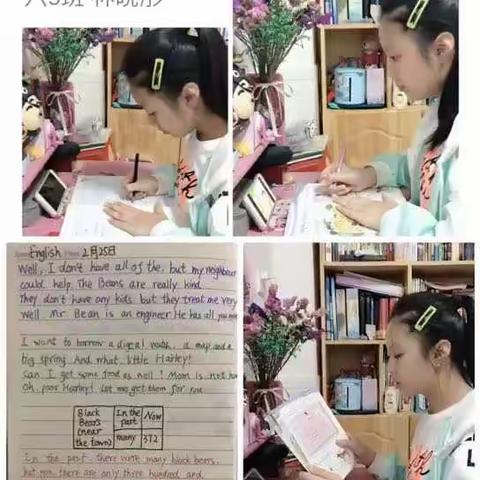 English 2月25日
Well, I don't have all of the, but my neighbours
could help. The Beans are really kind
They don't have any kids but they treat me very
well. Mr Bean is an engineer. He has all you need
I want to borrow a digital watch, a map and a
big spring. And what, little Harley!
Can I get some food as well! Mom is not home
Oh, poor Harley! Let me get them for you
Black Bears (near the town) In the past Now
many 372
In the past, there were many black bears,
but now there are only three hundred and